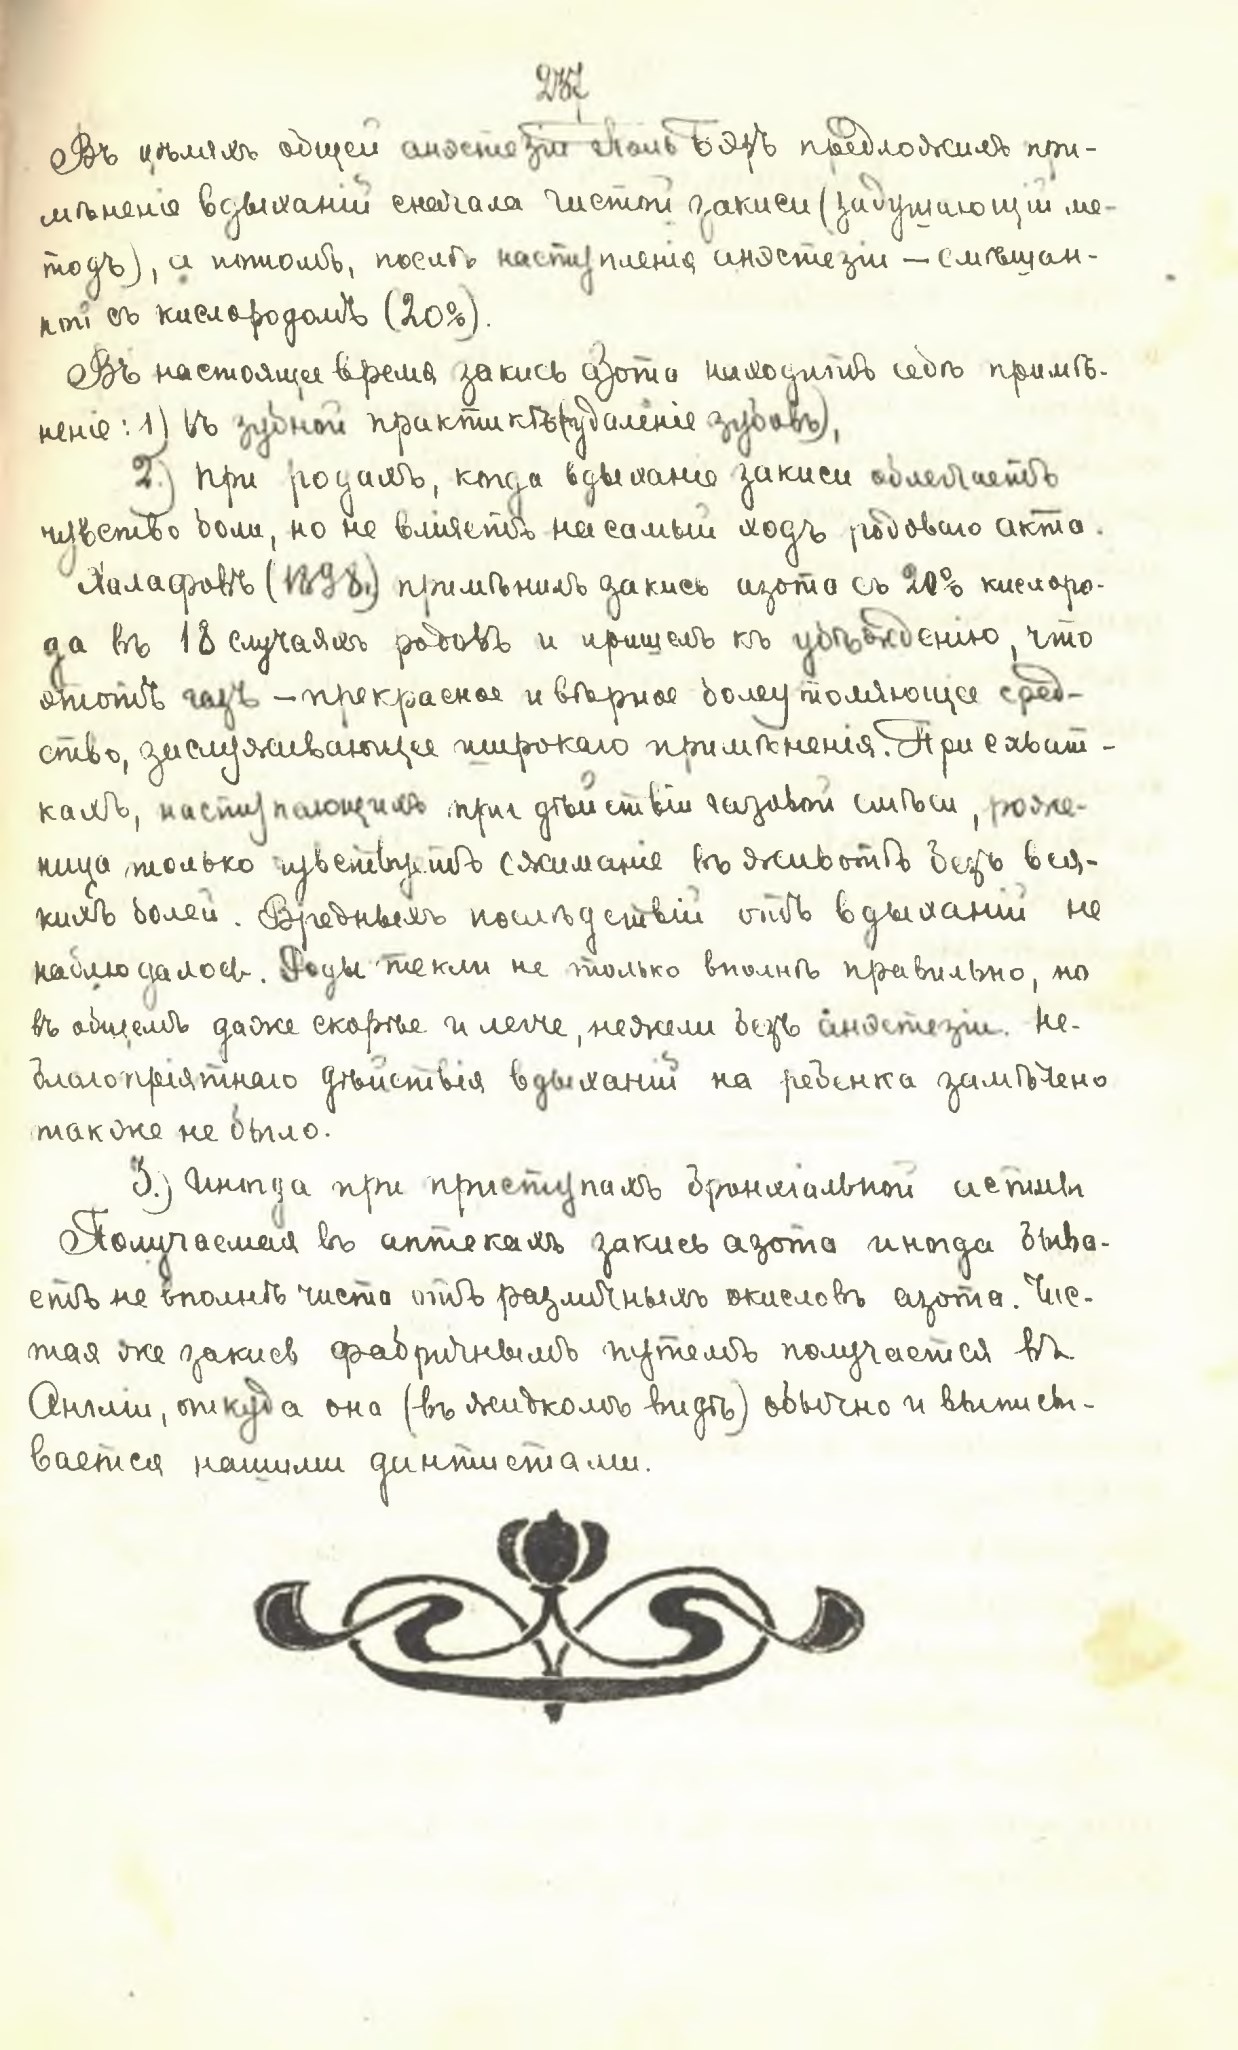 237
Въ цѣляхъ общей анэстезіи Поль Бэръ предложилъ при-
мѣненіе вдыханій сначала чистой закиси (задушающій ме-
тодъ), а потомъ, послѣ наступленія анэстезіи — смѣшан-
ной съ кислородомъ (20%).
Въ настоящее время закись азота находитъ себѣ примѣ-
неніе: 1) въ зубной практикѣ (удаленіе зубовъ),
2.) При родахъ, когда вдыханіе закиси облегчаетъ
чувство боли, но не вліяетъ на самый ходъ родоваго акта.
Халафовъ (1898.) примѣнилъ закись азота съ 20% кислоро-
да въ 18 случаяхъ родовъ и пришелъ къ убѣжденію, что
этотъ газъ — прекрасное и вѣрное болеутоляющее сред-
ство, заслуживающее широкаго примѣненія. При схват-
кахъ, наступающихъ при дѣйствіи газовой смѣси, роже-
ница только чувствуетъ сжиманіе въ животѣ безъ вся-
кихъ болей. Вредныхъ послѣдствій отъ вдыханій не
наблюдалось. Роды текли не только вполнѣ правильно, но
въ общемъ даже скорѣе и легче, нежели безъ анэстезіи. Не-
благопріятнаго дѣйствія вдыханій на ребенка замѣчено
также не было.
3.) Иногда при приступахъ бронхіальной астмы
Получаемая въ аптекахъ закись азота иногда быва-
етъ не вполнѣ чиста отъ различныхъ окисловъ азота. Чис-
тая же закись фабричнымъ путемъ получается въ
Англіи, откуда она (въ жидкомъ видѣ) обычно и выписы-
вается нашими дантистами.